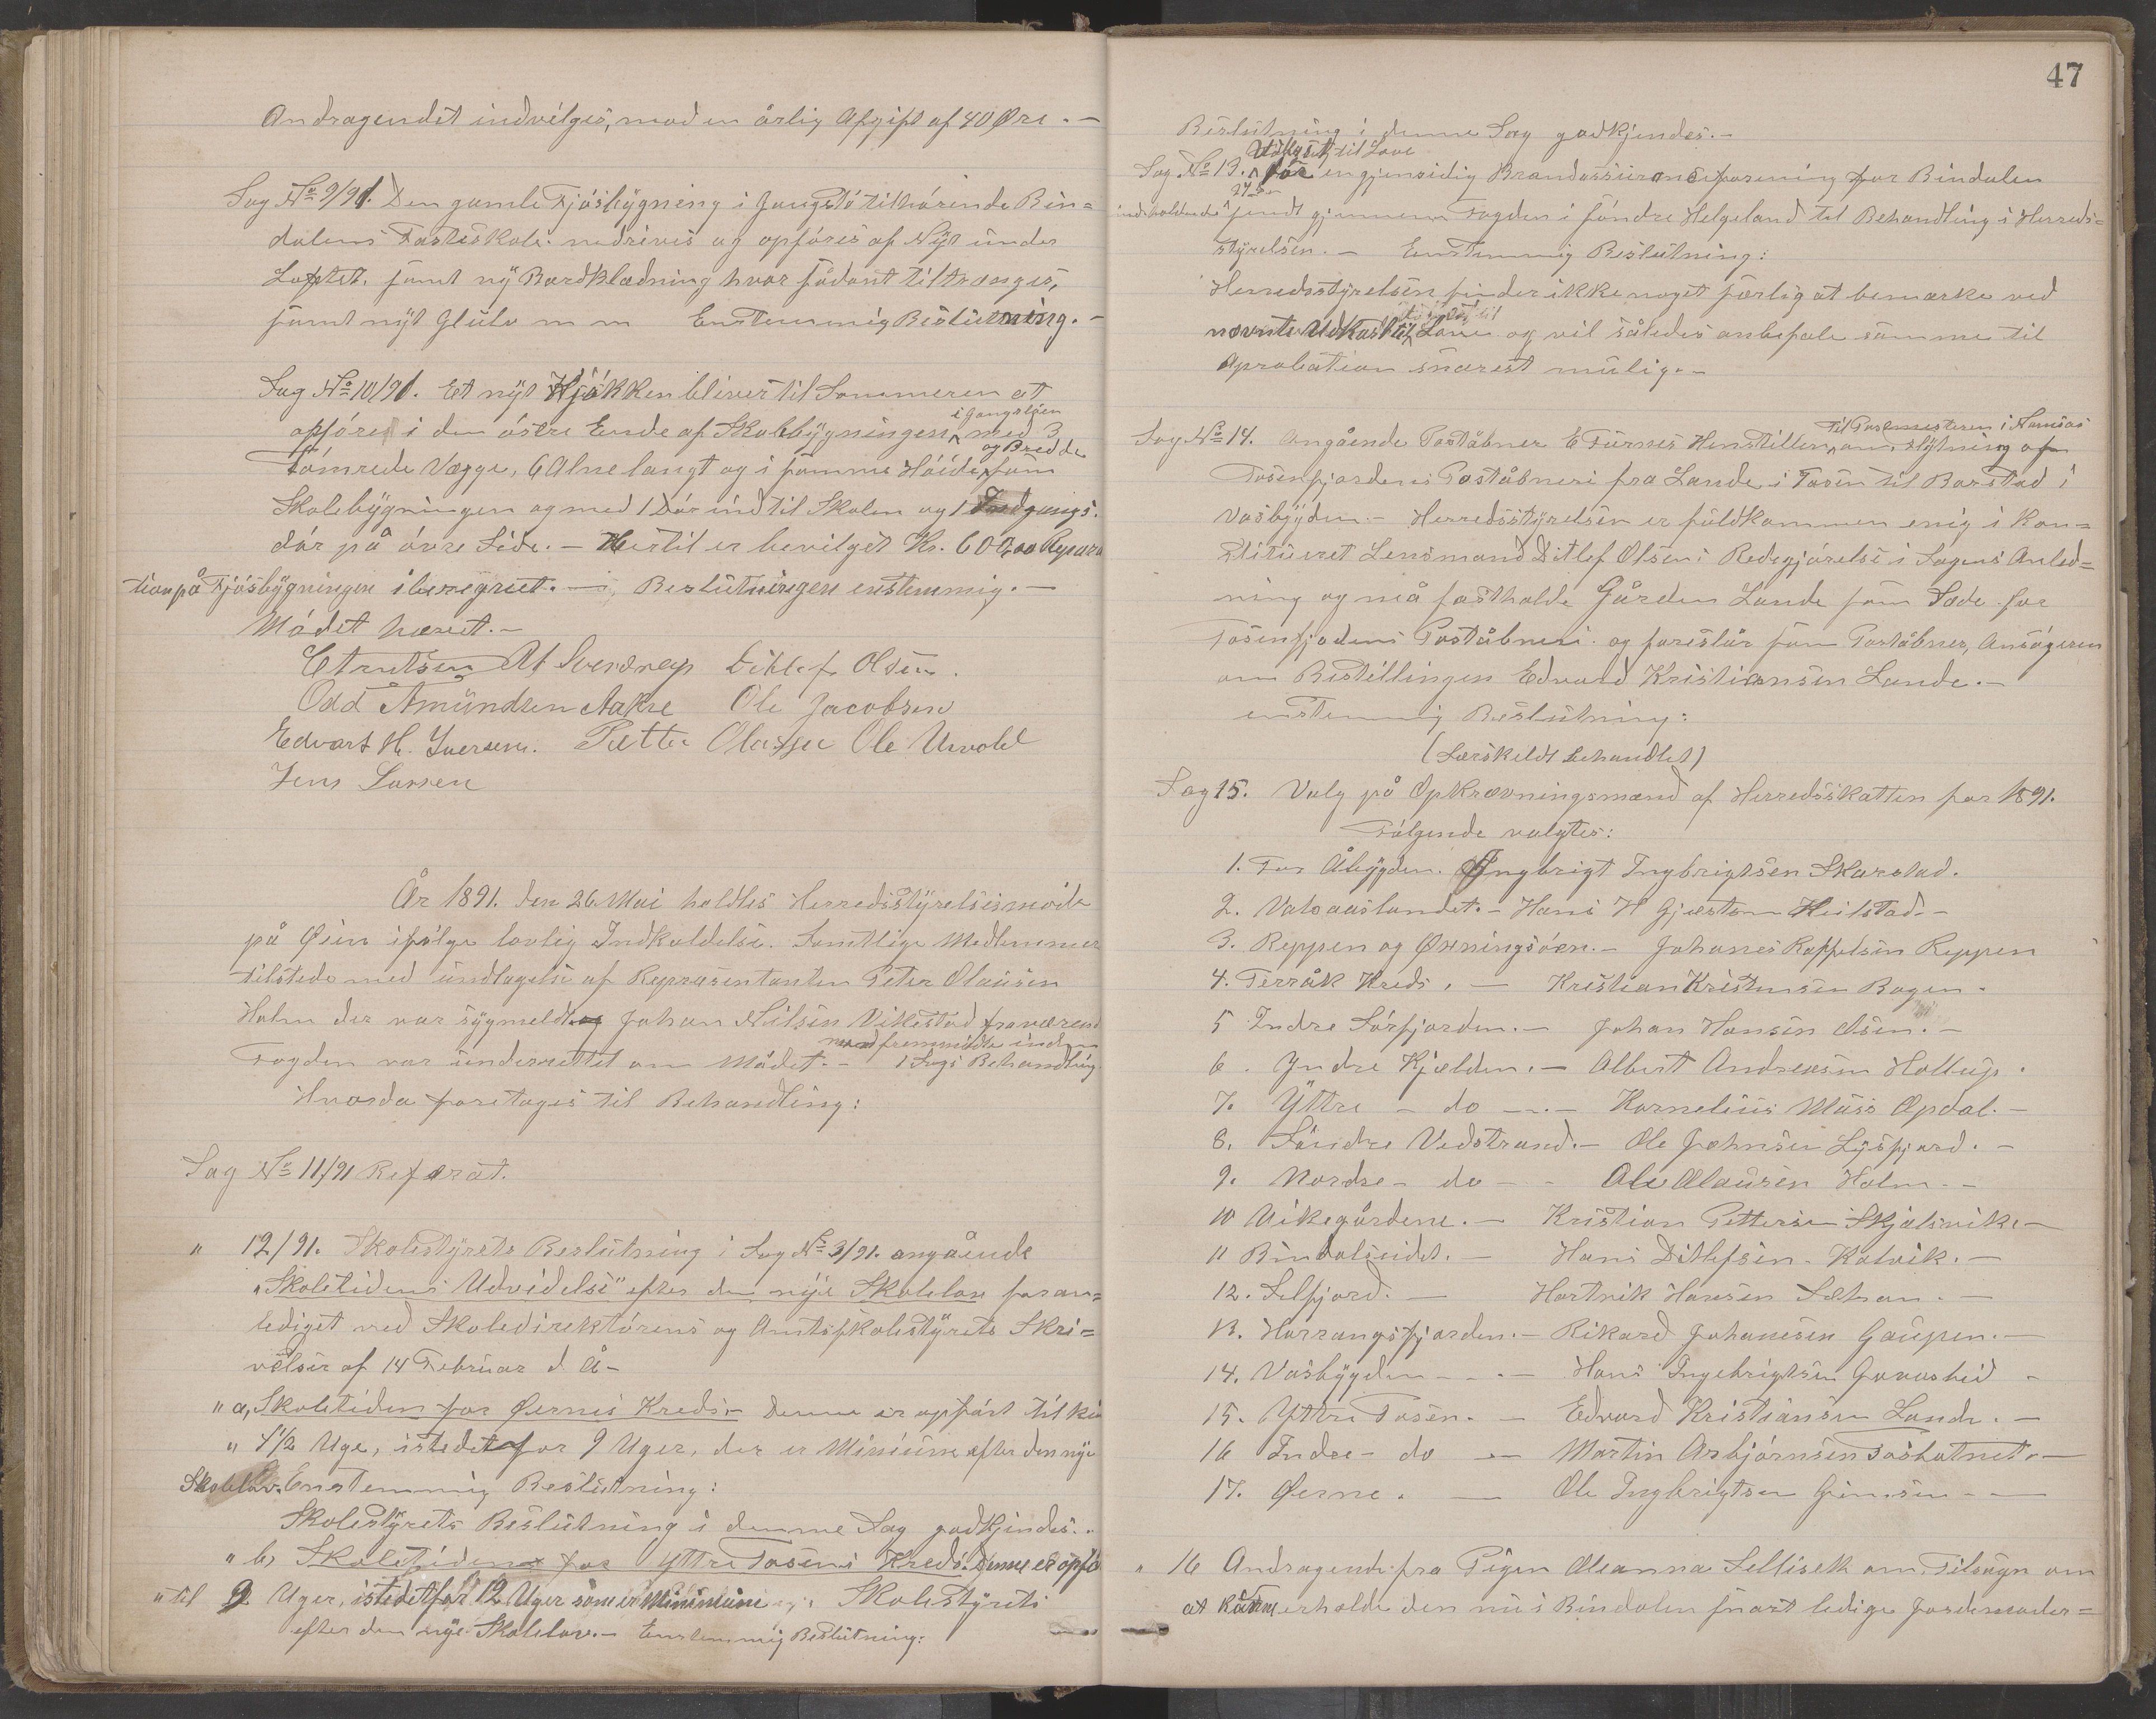 Andragendet indvilges, mod en årlig Afgift af 40 Øre. —
Sag No 9/91. Den gamle Fjøsbygning i Gangstø tilhørende Bin=
dalens Fasteskole. nedrives og opføres af Nyt under
Loftet. samt ny Bordklædning hvor sådant tiltrænges,
samt nyt Gulv m m Enstemmig Beslutning. —
Sag No 10/91. Et nyt Kjøkken bliver til Sommeren at
opføres i den østre Ende af Skolebygningen i Gangstøen med 3
Tømrede Vægge, 6 Alne langt og i samme Høide og Bredde som
Skolebygningen og med 1 Dør ind til Skolen og 1 Indgangs.
dør på øvre Side. — Hertil er bevilget Kr. 600,00 Repara
tion på Fjøsbygningen iberegnet. — Beslutningen enstemmig. —
Mødet hævet. —
At Sverdrup Ditlef Olsen.
Odd Amundsen Aakre Ole Jacobsen
Edvart H. Iversen. Petter Olassen Ole Urvold
Jens Larsen
År 1891. den 26 Mai holdtes Herredsstyrelsesmøde
på Øien ifølge lovlig Indkaldelse. Samtlige Medlemmer
tilstede med undtagelse af Repræsentanten Peter Olausen
Holm der var sygmeldt og Johan Nilsen Vikestad fraværend
men fremmødte inden
Fogden var underrettet om Mødet. — 1 Sags Behandling.
Hvorda foretages til Behandling:
Sag No 11/91 Referat.
" 12/91. Skolestyrets Beslutning i Sag No 3/91. angående
"Skoletidens Udvidelse" efter den nye Skolelov foran=
lediget ved Skoledirektørens og Amtsskolestyrets Skri=
velser af 14 Februar d. Å —
" a, Skoletiden for Øernes Kreds. — Denne er opført til kun
" 4 1/2 Uge, istedetfor 9 Uger, der er Minimum efter den nye
Skolelov. Enstemmig Beslutning:
Skolestyrets Beslutning i denne Sag godkjendes. "
" b, Skoletiden for Yttre Tosens Kreds. Denne er opfø
" til 9 Uger, istedetfor 12 Uger som er Minimum Skolestyrets
efter den nye Skolelov. — Enstemmig Beslutning:
47
Beslutning i denne Sag godkjendes. —
Udkast til Love
Sag No 13. for en gjensidig Brandassuranceforening for Bindalen
indeholdende 27 § sendt gjennem Fogden i Søndre Helgeland til Behandling i Herreds=
styrelsen. — Enstemmig Beslutning:
Herredsstyrelsen finder ikke noget særlig at bemærke ved
nævnte Udkast til Love og vil således anbefale samme til
Aprobation snarest mulig. —
til Postmesteren i Namsos
Sag No 14. Angående Poståbner E Furnes Henstillen om Flytning af
Tosenfjordens Poståbneri fra Lande i Tosen til Borstad i
Vasbygden. — Herredsstyrelsen er fuldkommen enig i Kon=
stitueret Lensmand Ditlef Olsens Redegjørelse i Sagens Anled=
ning og må fastholde Gården Lande som Sæde for
Tosenfjodens Poståbneri og foreslår som Poståbner, Ansøgeren
om Bestillingen Edvard Kristiansen Lande. —
enstemmig Beslutning:
(Særskeldt behandlet)
Sag 15. Valg på Opkrævningsmænd af Herredsskatten for 1891.
Følgende valgtes:
1. For Åbygden. Ingbrigt Ingbrigtsen Skarstad.
2. Vatsaaslandet. — Hans H Gjæstsen Heilstad. —
3. Reppen og Øxningsøen. — Johanes Raffelsen Reppen
4. Terråk Kreds. — Kristian Kristensen Bogen.
5 Indre Sørfjorden. — Johan Hansen Osen. —
6. Indre Kjælden. — Albert Andreasen Hollup.
7. Yttre — do — . — Kornelius Muss Opdal. —
8. Søndre Vedstrand. — Ole Johnsen Lysfjord. —
9. Nordre — do — - Ole Olausen Holm. —
10 Vikegårdene. — Kristian Pettersen Skjelsvike —
11 Bindalseidet. — Hans Ditlefsen Kalvik. —
12. Selfjord. — Hartvik Hansen Sætran. —
13. Harrangsfjorden. — Rikard Johanesen Gaupen. —
14. Vasbygden — — . — Hans Ingebrigtsen Gaasheid —
15. Yttre Tosen. — Edvard Kristiansen Lande. —
16 Indre — do — Martin Asbjørnsen Tosbotnet. —
17. Øerne. — Ole Ingbrigtsen Gimsøen — —
" 16 Andragende fra Pigen Oleanna Sellisek om Tilsagn om
at kunne erholde den nu i Bindalen snart ledige Jordemoder=